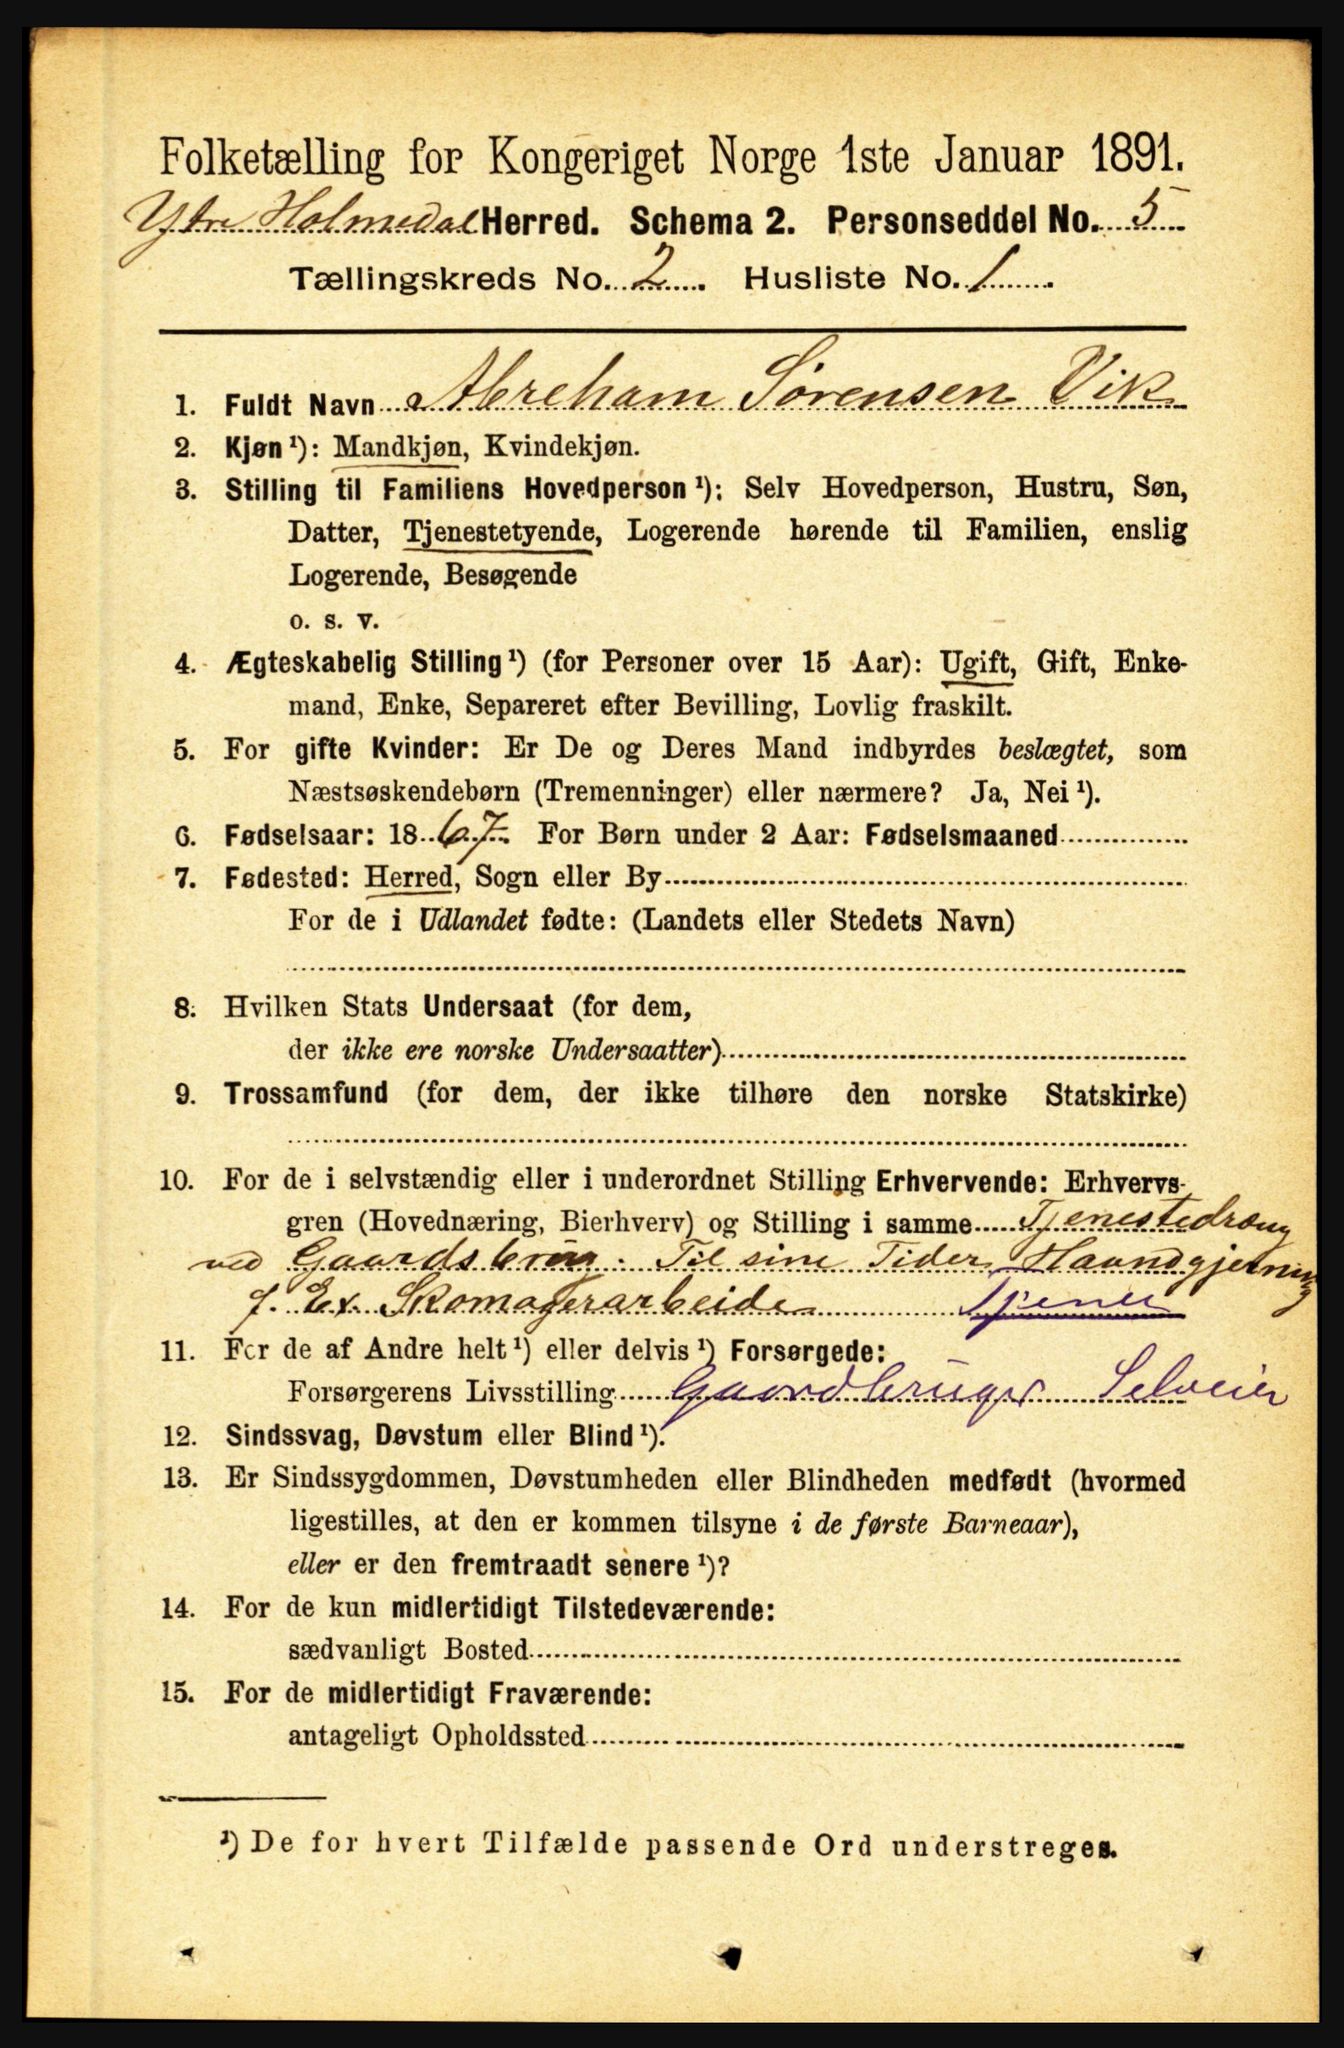 Folketælling for Kongeriget Norge 1ste Januar 1891.
Ytre Holmedal Herred. Schema 2. Personseddel No. 5
Tællingskreds No. 2 Husliste No. 1
1. Fuldt Navn Abreham Sørensen Vik
2. Kjøn ¹): Mandkjøn, Kvindekjøn.
3. Stilling til Familiens Hovedperson ¹): Selv Hovedperson, Hustru, Søn,
Datter, Tjenestetyende, Logerende hørende til Familien, enslig
Logerende, Besøgende
o. s. v.
4. Ægteskabelig Stilling ¹) (for Personer over 15 Aar): Ugift, Gift, Enke-
mand, Enke, Separeret efter Bevilling, Lovlig fraskilt.
5. For gifte Kvinder: Er De og Deres Mand indbyrdes beslægtet, som
Næstsøskendebørn (Tremenninger) eller nærmere? Ja, Nei ¹).
6. Fødselsaar: 1867. For Børn under 2 Aar: Fødselsmaaned
7. Fødested: Herred, Sogn eller By
For de i Udlandet fødte: (Landets eller Stedets Navn)
8. Hvilken Stats Undersaat (for dem,
der ikke ere norske Undersaatter)
9. Trossamfund (for dem, der ikke tilhøre den norske Statskirke)
10. For de i selvstændig eller i underordnet Stilling Erhvervende: Erhvervs-
gren (Hovednæring, Bierhverv) og Stilling i samme Tjenestedræng
ved Gaardsbrug. Til sine Tider Haandgjerning
f. Ex. Skomagerarbeide Tjener
11. For de af Andre helt ¹) eller delvis ¹) Forsørgede:
Forsørgerens Livsstilling Gaardbruger Selveier
12. Sindssvag, Døvstum eller Blind ¹).
13. Er Sindssygdommen, Døvstumheden eller Blindheden medfødt (hvormed
ligestilles, at den er kommen tilsyne i de første Barneaar),
eller er den fremtraadt senere ¹)?
14. For de kun midlertidigt Tilstedeværende:
sædvanligt Bosted
15. For de midlertidigt Fraværende:
antageligt Opholdssted
¹) De for hvert Tilfælde passende Ord understreges.